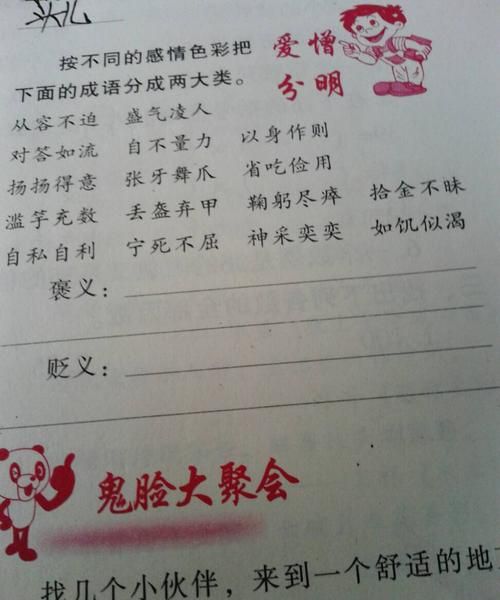 按不同的感情色彩把
下面的成语分成两大类。
爱憎
分明
从容不迫 盛气凌人
对答如流 自不量力 以身作则
扬扬得意 张牙舞爪 省吃俭用
滥竽充数 丢盔弃甲 鞠躬尽瘁 拾金不昧
自私自利 宁死不屈 神采奕奕 如饥似渴
褒义：
贬义：
鬼脸大聚会
找几个小伙伴，来到一个舒适的地